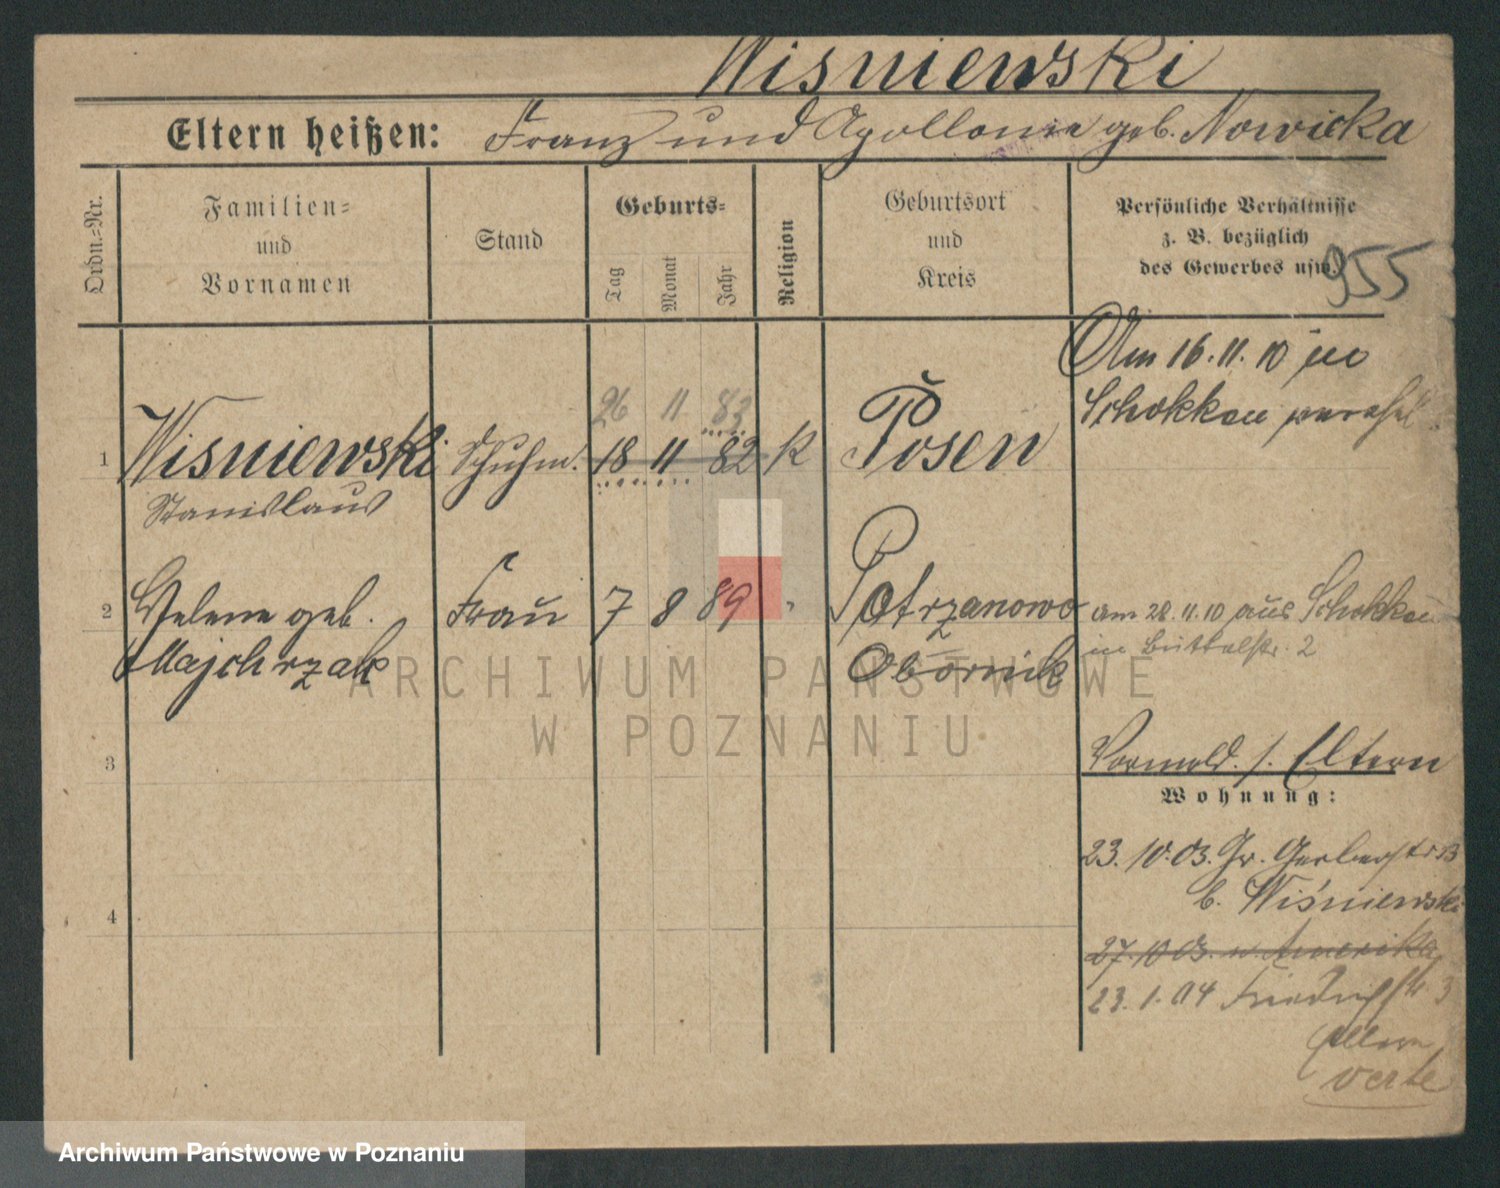 Wisniewski
Eltern heißen: Franz und Apollonia geb. Nowicka
Ordn.-Nr.
Familien-
und
Vornamen
Stand
Geburts-
Tag
Monat
Jahr
Religion
Geburtsort
und
Kreis
Persönliche Verhältnisse
z. B. bezüglich
des Gewerbes usw.
955
Am 16.11.10 in
Schokken
26 11 83
1 Wisniewski Schuhm. 18 11 82 K Posen
Stanislaus
2 Helene geb. Frau 7 8 89 " Potrzanowo
Majchrzak Obornik
am 28.11.10 aus Schokken
in 2
3
Vormeld. s. Eltern
Wohnung:
23.10.03. Gr. Gerberstr 13
b. Wiśniewski
4
27.10.03. n. Amerika
23.1.04 Friedrichstr. 3
Eltern
verte
ARCHIWUM PAŃSTWOWE
W POZNANIU
Archiwum Państwowe w Poznaniu